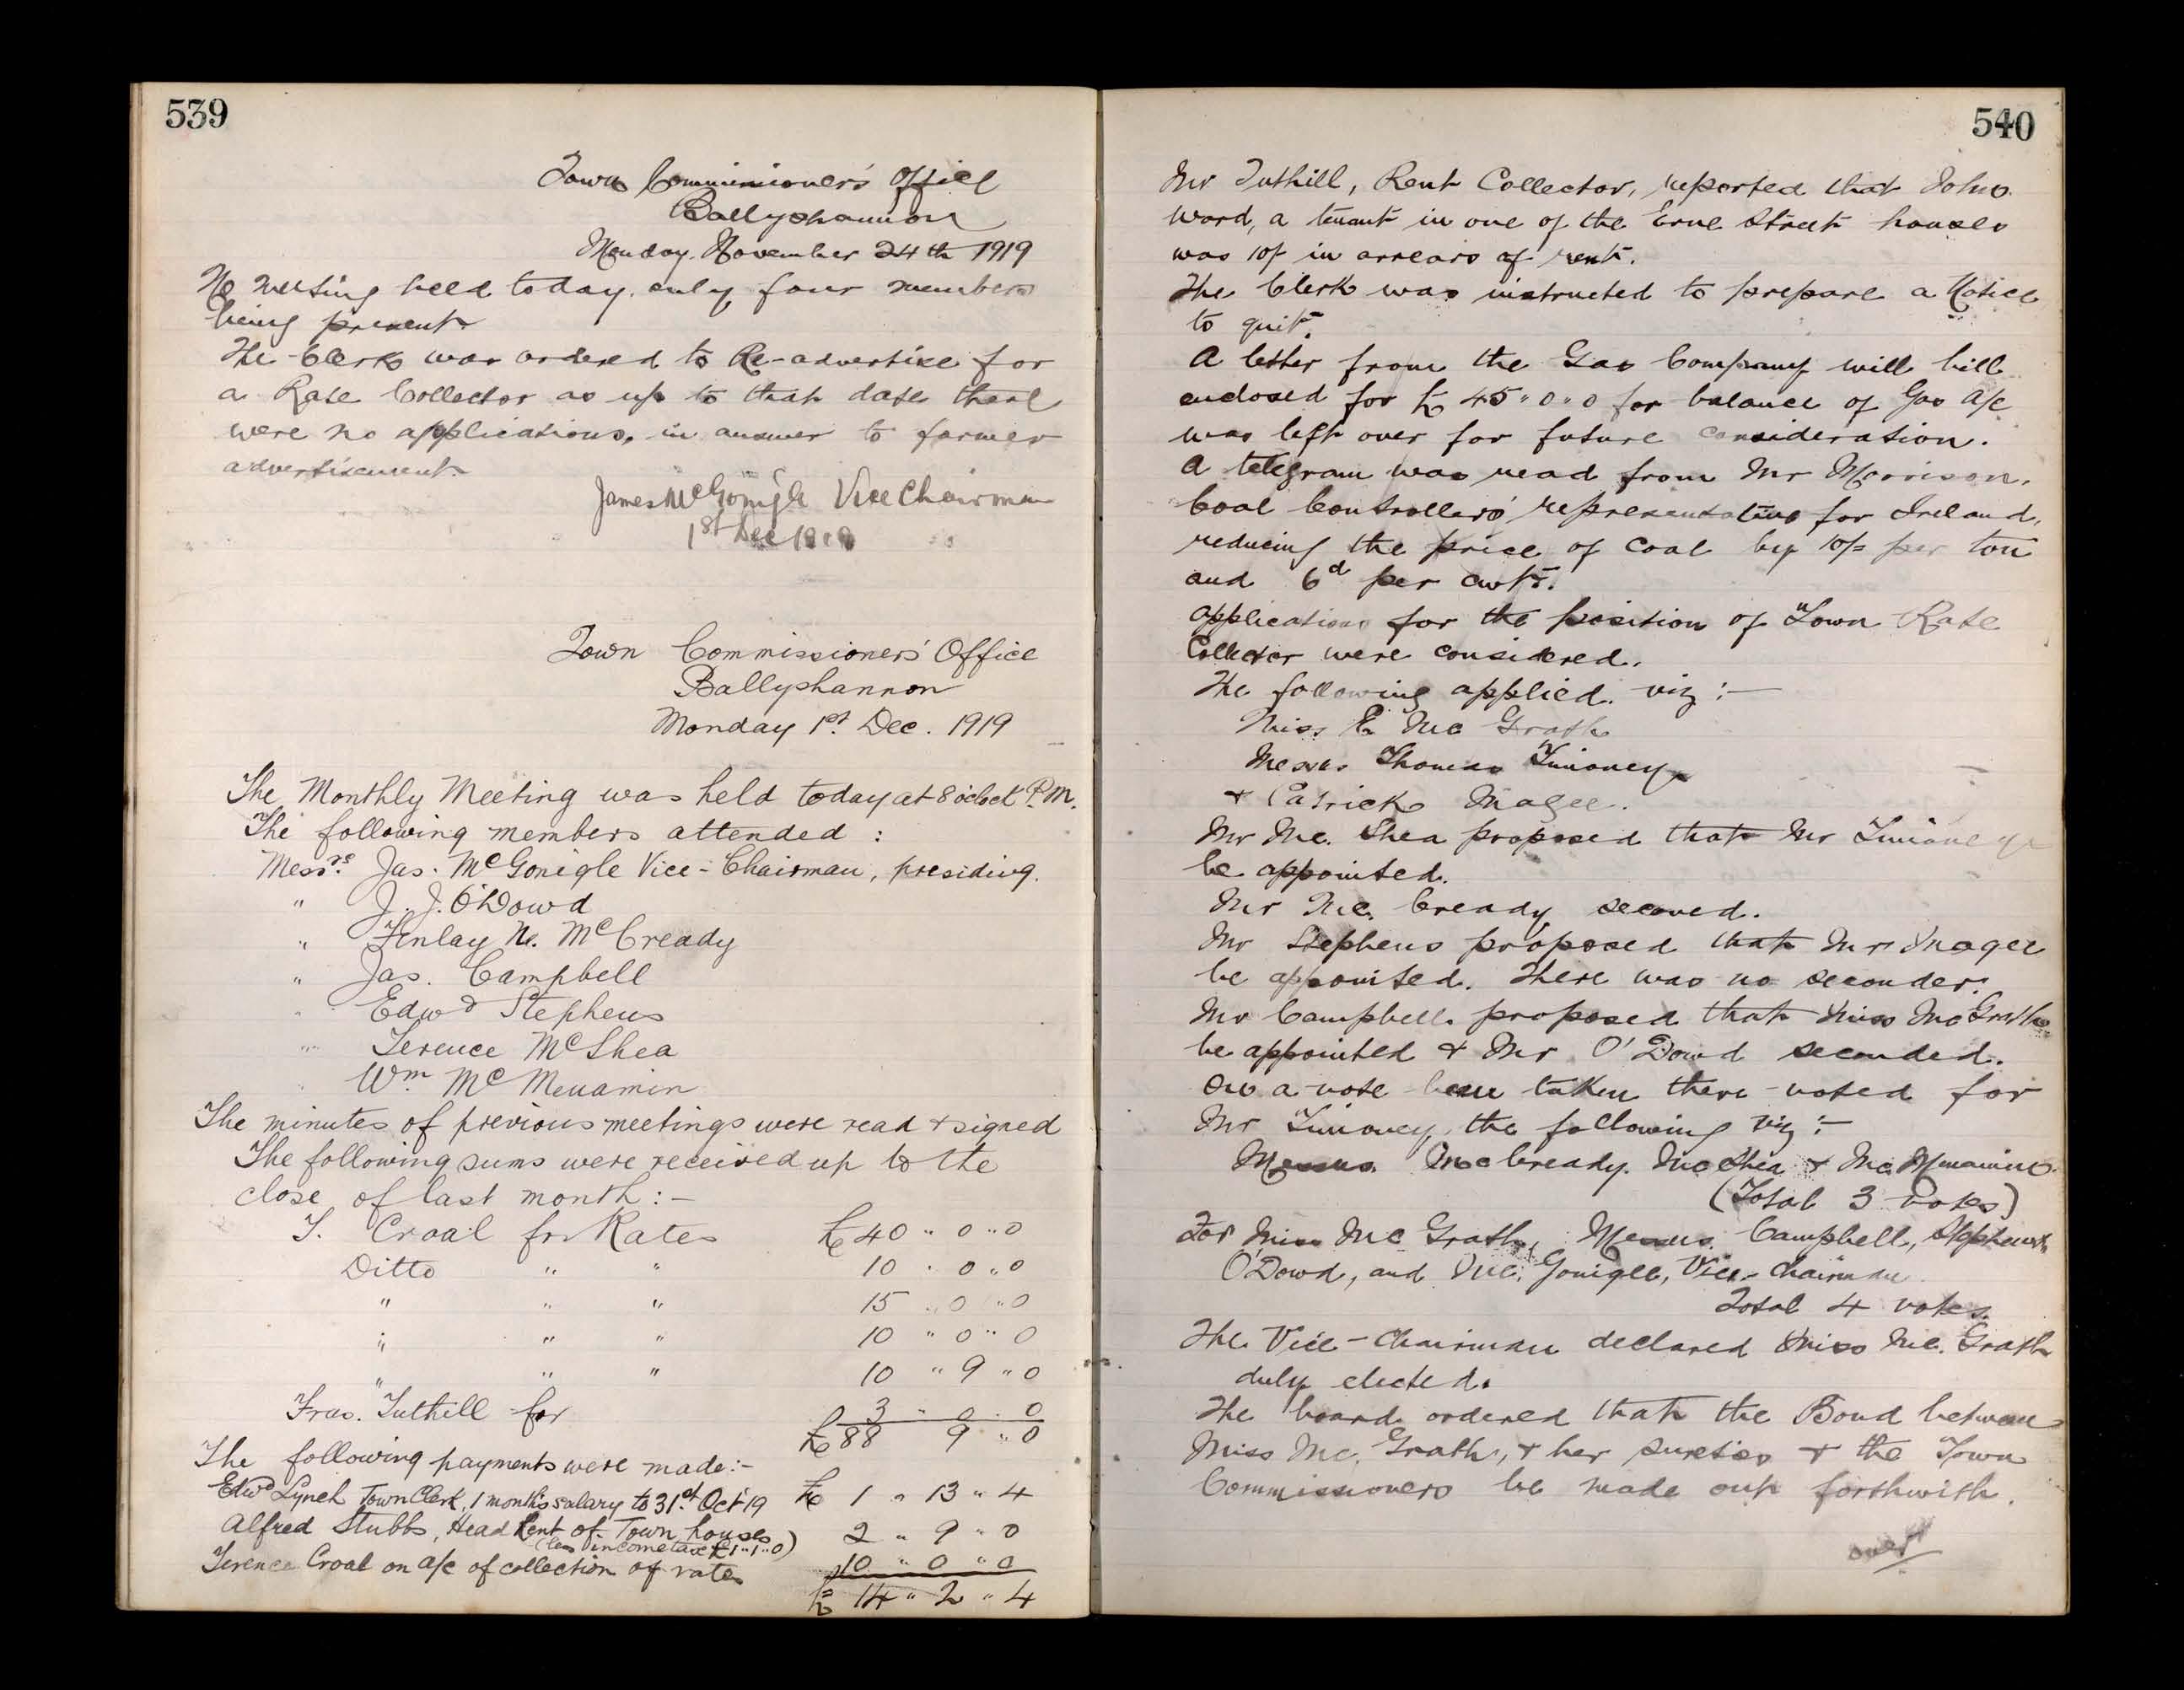 539
Town Commissioner's Office
Ballyshannon
Monday. November 24th 1919
No meeting held today. only four members
being present
The Clerk was ordered to Re-advertise for
a Rate Collector as up to that date there
were no applications, in answer to former
advertisement.
James McGonigle Vice Chairman
1st Dec 1919
Town Commissioners' Office
Ballyshannon
Monday 1st. Dec. 1919
The Monthly Meeting was held today at 8 o'clock P.M.
The following members attended :
Messrs. Jas. McGonigle Vice-Chairman, presiding.
" J. J. O'Dowd
" Finlay N. McCready
" Jas. Campbell
" Edwd Stephens
" Terence McShea
Wm McMenamin
The minutes of previous meetings were read & signed
The following sums were received up to the
close of last month :-
T. Croal for Rates £40 " 0 " 0
Ditto " " 10 " 0 " 0
" " " 15 " 0 " 0
" " " 10 " 0 " 0
" " " 10 " 9 " 0
Fras. Tuthill for 3 " 0 " 0
£88 9 " 0
The following payments were made:-
Edwd Lynch Town Clerk, 1 month's salary to 31st Oct '19 £ 1 " 13 " 4
Alfred Stubbs, Head Rent of Town houses 2 " 9 " 0
(less income tax £1 " 1 " 0)
Terence Croal on a/c of collection of rates 10 " 0 " 0
£ 14 " 2 " 4
540
Mr Tuthill, Rent Collector, reported that John
Ward, a tenant in one of the Erne Street houses
was 10/ in arrears of rent.
The Clerk was instructed to prepare a Notice
to quit.
A letter from the Gas Company will bill
enclosed for £45 " 0 " 0 for balance of Gas a/c
was left over for future consideration.
A telegram was read from Mr Morrison,
Coal Controllers' representative for Ireland,
reducing the price of coal by 10/= per ton
and 6d per cwt.
Applications for the position of Town Rate
Collector were considered.
The following applied. viz :-
Miss E Mc Grath
Messrs Thomas Timoney
& Patrick Magee.
Mr Mc. Shea proposed that Mr Timoney
be appointed.
Mr Mc. Cready seconed.
Mr Stephens proposed that Mr Magee
be appointed. There was no seconder.
Mr Campbell proposed that Miss McGrath
be appointed & Mr O'Dowd seconded.
On a vote been taken there voted for
Mr Timoney, the following viz :-
Messrs. McCready. McShea & Mc Menamin.
(Total 3 votes)
For Miss Mc Grath, Messrs Campbell, Stephens,
O'Dowd, and Mc. Gonigle, Vice-Chairman.
Total 4 votes.
The Vice-Chairman declared Miss Mc. Grath
duly elected.
The board ordered that the Bond between
Miss Mc. Grath, & her sureties & the Town
Commissioners be made out forthwith.
over